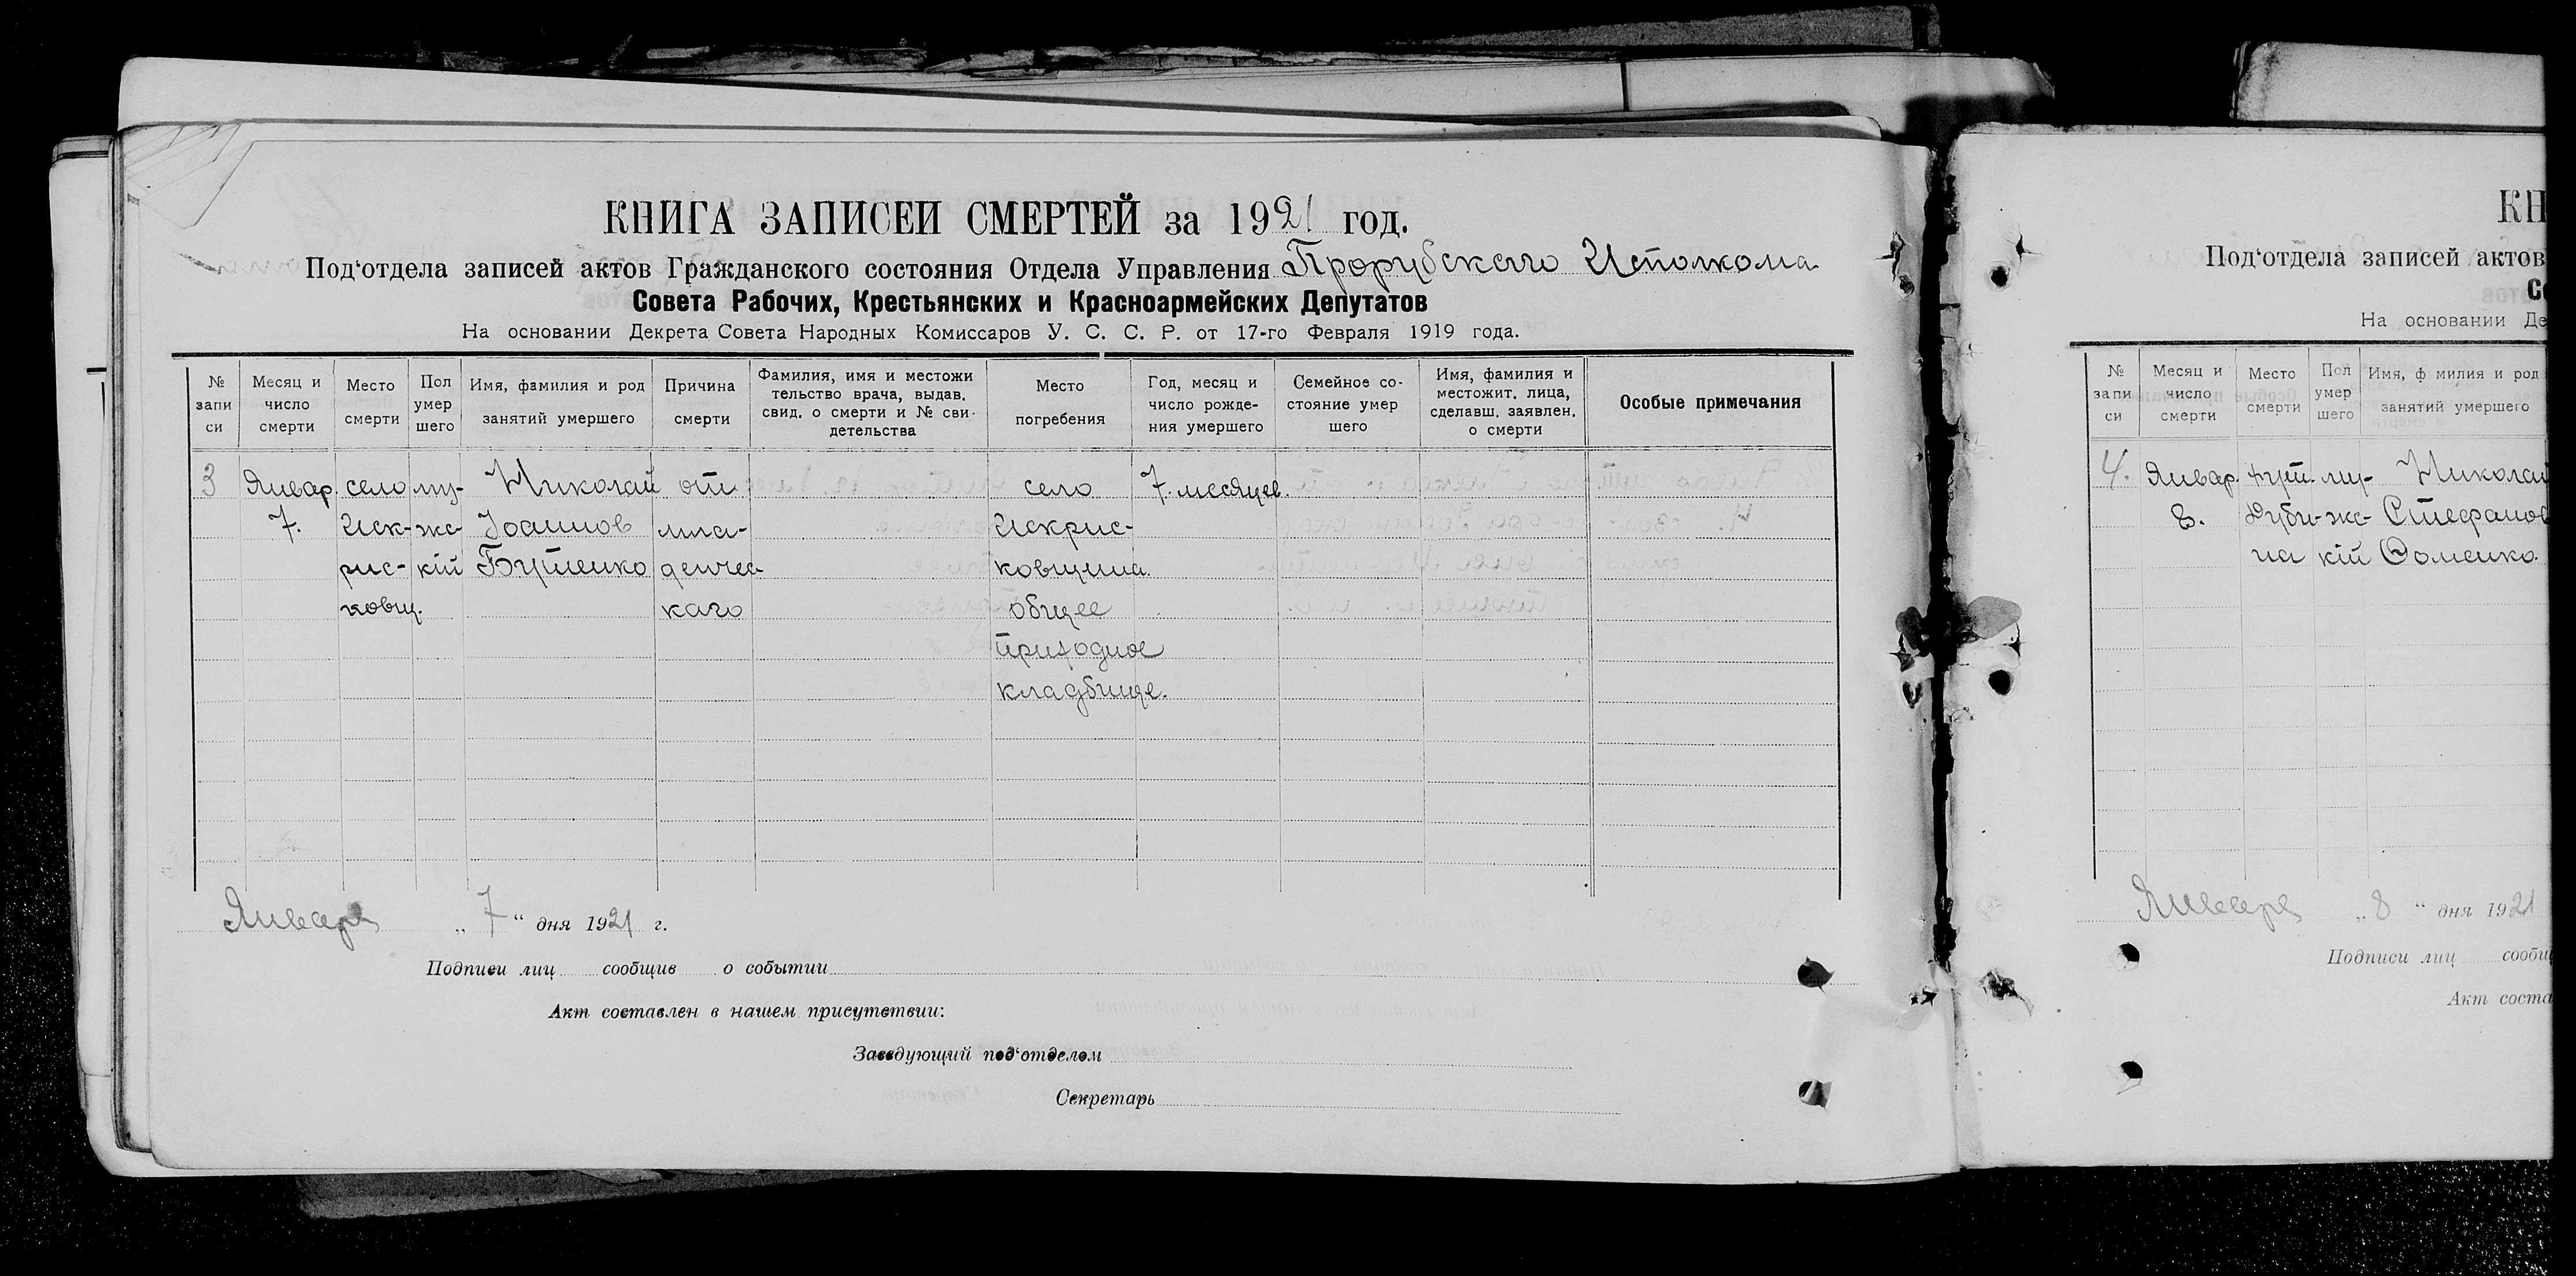 КНИГА ЗАПИСЕЙ СМЕРТЕЙ за 1921 год.
Под'отдела записей актов Гражданского состояния Отдела Управления Прорубскаго Исполкома
Совета Рабочих, Крестьянских и Красноармейских Депутатов
На основании Декрета Совета Народных Комиссаров У. С. С. Р. от 17-го Февраля 1919 года.
№ запи си
Месяц и число смерти
Место смерти
Пол умер шего
Имя, фамилия и род занятий умершего
Причина смерти
Фамилия, имя и местожи тельство врача, выдав. свид. о смерти и № сви- детельства
Место погребения
Год, месяц и число рожде- ния умершего
Семейное со- стояние умер шего
Имя, фамилия и местожит. лица, сделавш. заявлен. о смерти
Особые примечания
3 Январ. село му- Николай от село 7. месяцев.
7. Иск- жс- Іоаннов мла- Искрис-
рис- кій Бутенко денчес- ковщина.
ковщ. каго общее
приходное
кладбище.
Января „ 7 “ дня 1921 г.
Подписи лиц сообщив о событии
Акт составлен в нашем присутствии:
Заведующий под'отделом
Секретарь
КН
Под'отдела записей актов
Со
На основании Де
№ запи си
Месяц и число смерти
Место смерти
Пол умер шего
Имя, ф милия и род занятий умершего
4. Январ. хут. му- Николай
8. Дуби- жс- Стефанов
на кій Соменко.
Января „ 8 “ дня 1921
Подписи лиц сообщ
Акт соста